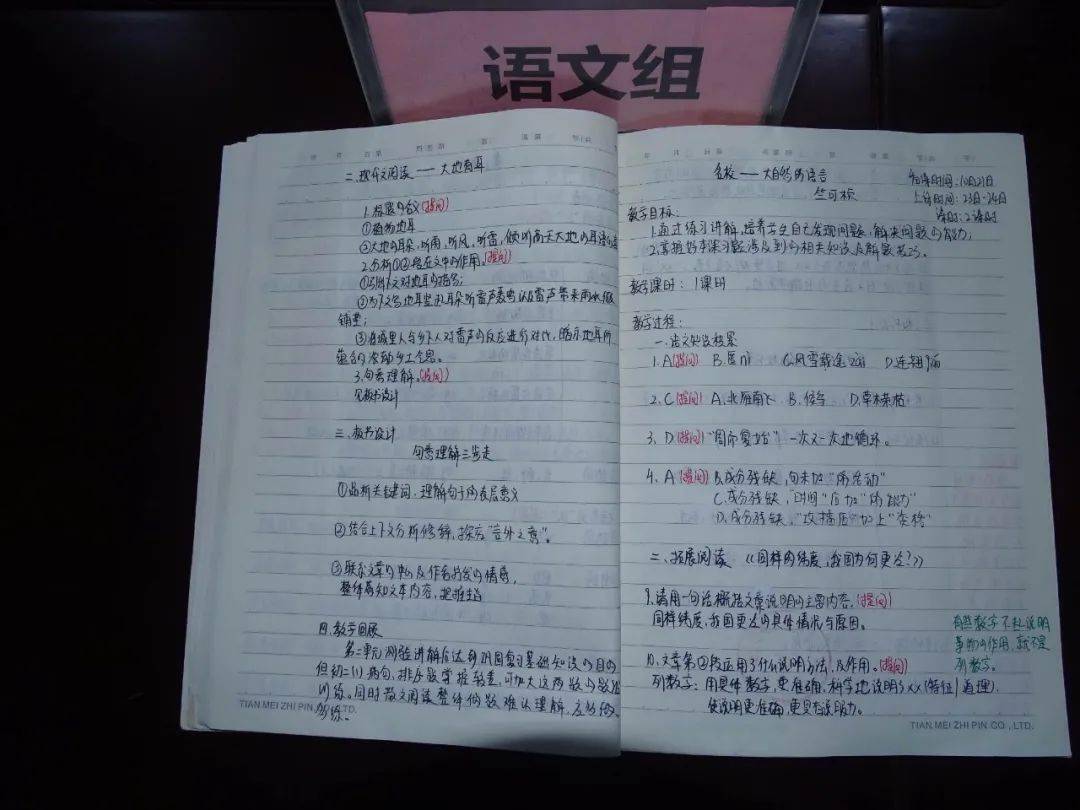 语文组
二、现代文阅读——大地有耳
1.标题含义(提问)
①植物地耳
②大地的耳朵,听雨、听风、听雷,倾听雨天大地的耳
2.分析①②段在文中的作用。(提问)
①引出下文对地耳的描写;
②为下文写地耳竖起耳朵听雷声轰鸣以及雷声带来雨水做
铺垫;
③在城里人与乡下人对雷声的反应进行对比,暗示地耳所
蕴含的浓郁乡土气息。
3.句意理解。(提问)
见板书设计
三、板书设计
句意理解三步走
①品析关键词,理解句子的表层意义
②结合上下文分析修辞,探究"言外之意"。
③联系文章的中心及作者抒发的情感,
整体感知文本内容,把握主旨
四、教学回顾
第二单元测验讲解后达到巩固复习基础知识的目的
但初二(1)病句、排序题掌握较差,可加大这两题的
训练。同时散文阅读整体偏难,难以理解,应多做、
多练。
TIAN MEI ZHI PIN CO., LTD.
名校——大自然的语言
竺可桢
备课时间:10月21日
上课时间:23日-24日
课时:2课时
教学目标:
1.通过练习讲解,培养学生自己发现问题,解决问题的能力;
2.掌握好本课习题涉及到的相关知识及解题技巧。
教学课时:1课时
教学过程:
一、语文知识积累
1.A(提问) B.匿nì C.风雪载途zài D.连翘qiáo
2.C(提问) A.北雁南飞 B.候鸟 D.草木荣枯
3.D(提问)"周而复始"一次又一次地循环。
4.A(提问) B.成分残缺,句末加"的活动"
C.成分残缺,"时间"后加"的能力"
D.成分残缺,"玫瑰后"加上"等格"
二、拓展阅读《同样的纬度,我国为何更冷?》
9.请用一句话概括文章说明的主要内容。(提问)
同样纬度,我国更冷的具体情况与原因。
10.文章第②段运用了什么说明方法,及作用。(提问)
列数字:用具体数字,更准确、科学地说明了××(特征|道理)
使说明更准确,更具有说服力。
有些数字不起说明
事物的作用,就不是
列数字。
TIAN MEI ZHI PIN CO., LTD.